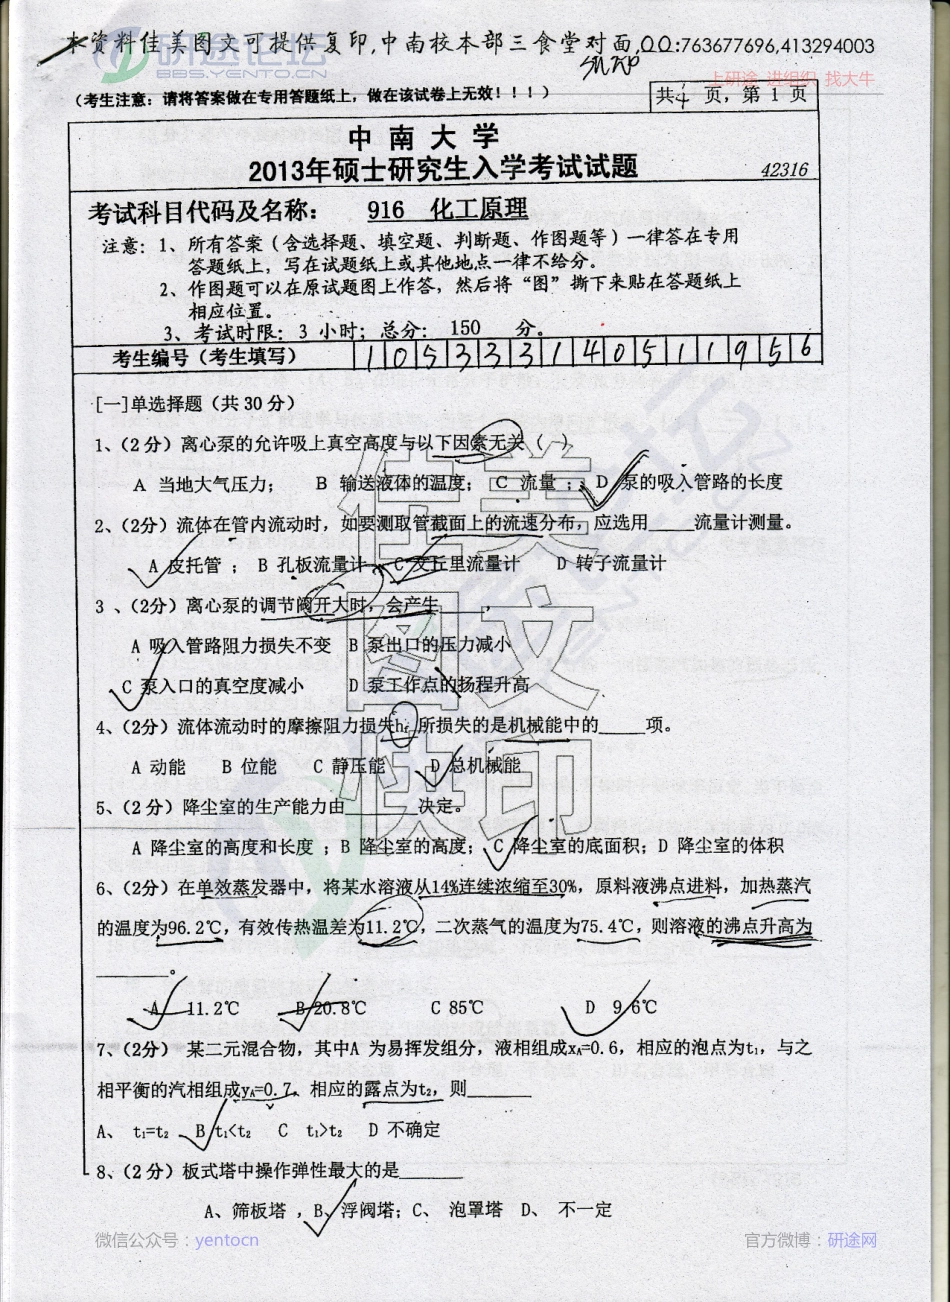 本资料佳美图文可提供复印,中南校本部三食堂对面,QQ:763677696,413294003
研途论坛
BBS.YENTO.CN
上研途 进组织 找大牛
(考生注意：请将答案做在专用答题纸上，做在该试卷上无效！！！)
共4页，第 1 页
中 南 大 学
2013年硕士研究生入学考试试题
42316
考试科目代码及名称： 916 化工原理
注意：1、所有答案（含选择题、填空题、判断题、作图题等）一律答在专用
答题纸上，写在试题纸上或其他地点一律不给分。
2、作图题可以在原试题图上作答，然后将“图”撕下来贴在答题纸上
相应位置。
3、考试时限：3 小时；总分： 150 分。
考生编号（考生填写） 105333140511956
[一]单选择题（共 30 分）
1、（2 分）离心泵的允许吸上真空高度与以下因素无关（ ）
A 当地大气压力； B 输送液体的温度； C 流量 ； D 泵的吸入管路的长度
2、（2分）流体在管内流动时，如要测取管截面上的流速分布，应选用____流量计测量。
A 皮托管 ； B 孔板流量计 C 文丘里流量计 D 转子流量计
3 、（2分）离心泵的调节阀开大时，会产生____，
A 吸入管路阻力损失不变 B 泵出口的压力减小
C 泵入口的真空度减小 D 泵工作点的扬程升高
4、（2分）流体流动时的摩擦阻力损失hf 所损失的是机械能中的____项。
A 动能 B 位能 C 静压能 D 总机械能
5、（2 分）降尘室的生产能力由______决定。
A 降尘室的高度和长度 ；B 降尘室的高度； C 降尘室的底面积；D 降尘室的体积
6、（2分）在单效蒸发器中，将某水溶液从14%连续浓缩至30%，原料液沸点进料，加热蒸汽
的温度为96.2℃，有效传热温差为11.2℃，二次蒸气的温度为75.4℃，则溶液的沸点升高为
______。
A 11.2℃ B 20.8℃ C 85℃ D 9.6℃
7、（2分） 某二元混合物，其中A 为易挥发组分，液相组成xA=0.6，相应的泡点为t1，与之
相平衡的汽相组成yA=0.7，相应的露点为t2，则______
A、 t1=t2 B t1<t2 C t1>t2 D 不确定
8、（2 分）板式塔中操作弹性最大的是______
A、筛板塔 ，B、浮阀塔；C、 泡罩塔 D、 不一定
佳美
图文
快印
微信公众号：yentocn
官方微博：研途网